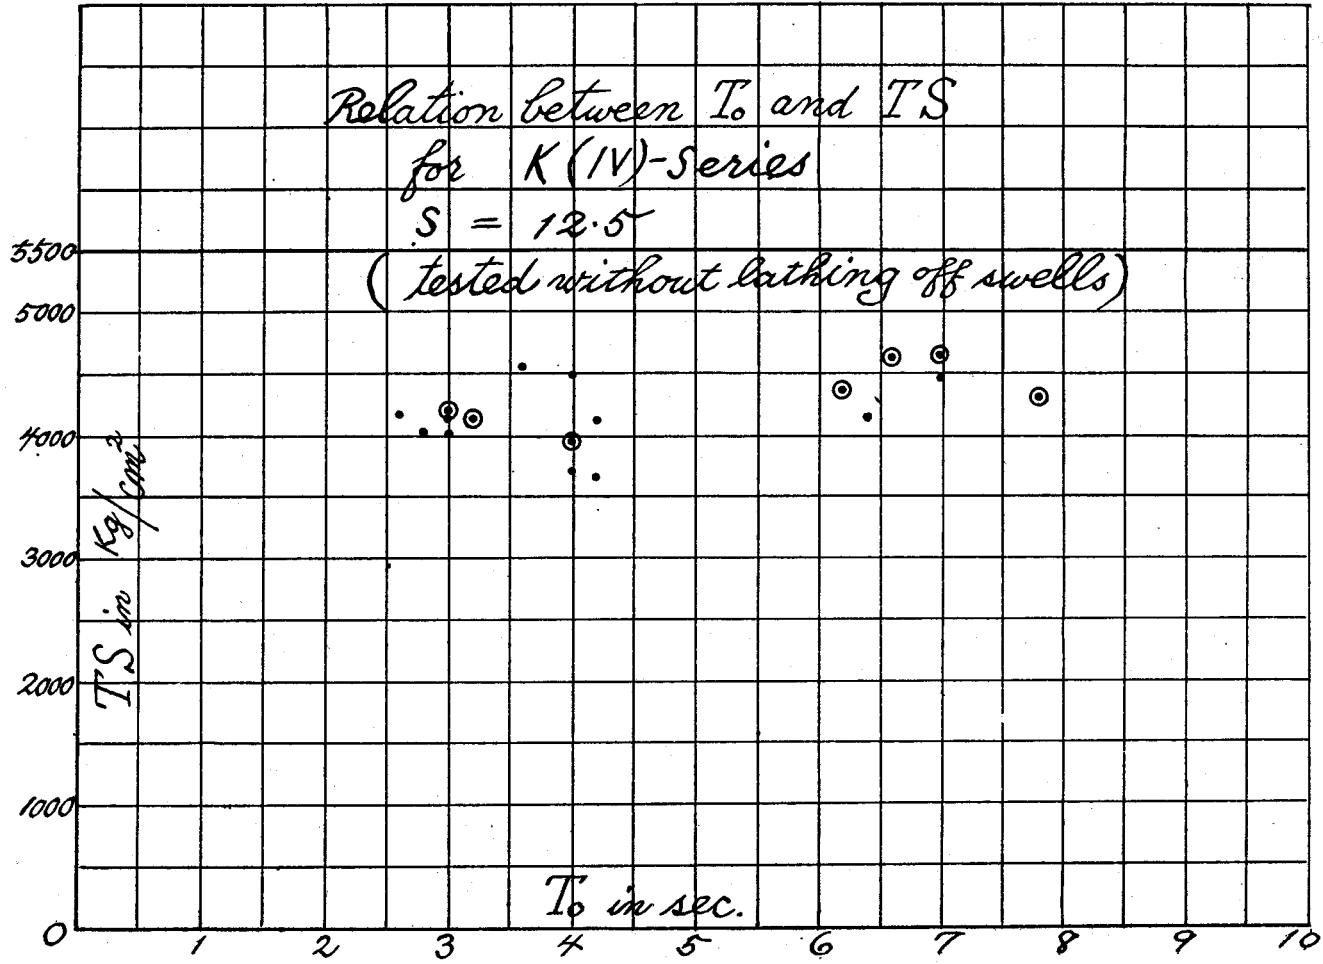 Relation between T₀ and TS
for K(IV)-Series
S = 12.5
(tested without lathing off swells)
5500
5000
4000
3000
2000
1000
0
TS in Kg/cm²
T₀ in sec.
1 2 3 4 5 6 7 8 9 10